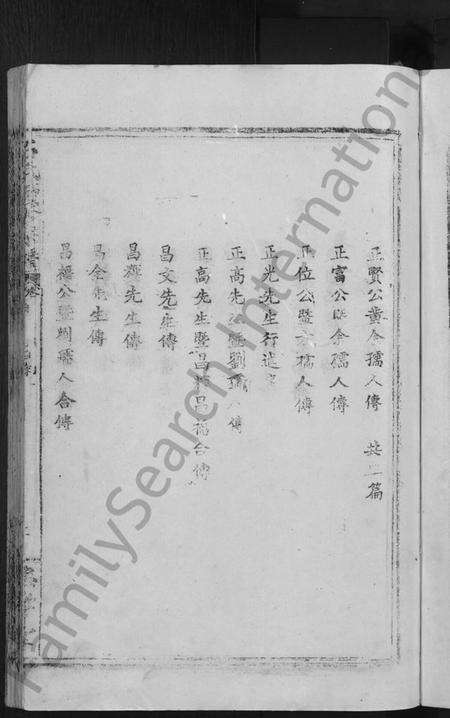 正賢公黃余孺人傳 共二篇
正富公暨余孺人傳
正位公暨孺人傳
正光先生行述
正高先生暨劉孺人傳
正高先生暨昌昌合傳
昌文先生傳
昌先生傳
昌金先生傳
昌公暨劉孺人合傳
FamilySearch International